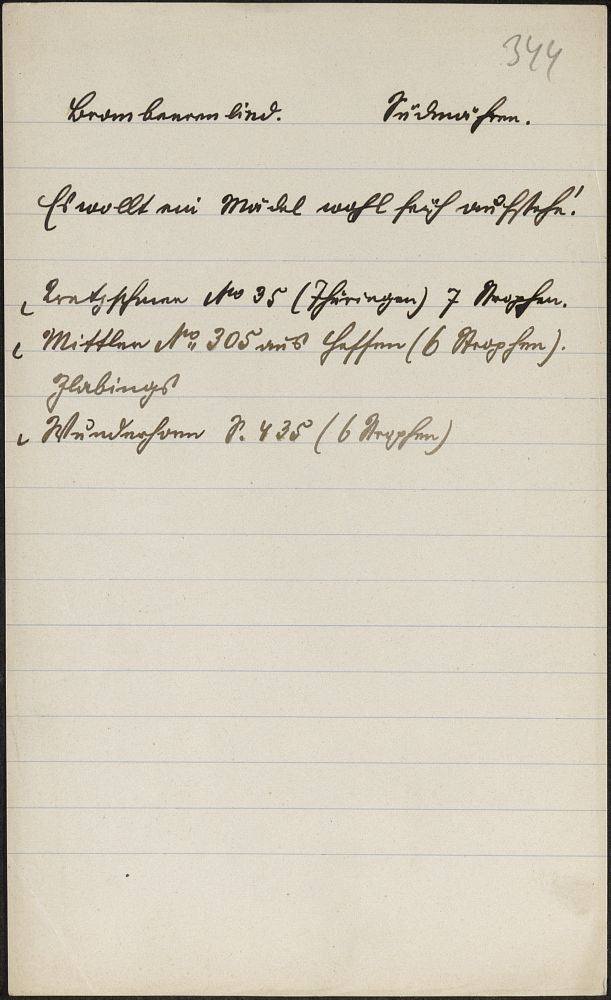 344
Brombeerenlied. Südmähren.
Es wollt ein Mädel wohl früh aufstehn!
Kretzschmer No 35 (Thüringen) 7 Strophen.
Mittler No 305 aus Hessen (6 Strophen).
Zlabings
Wunderhorn S. 435 (6 Strophen)